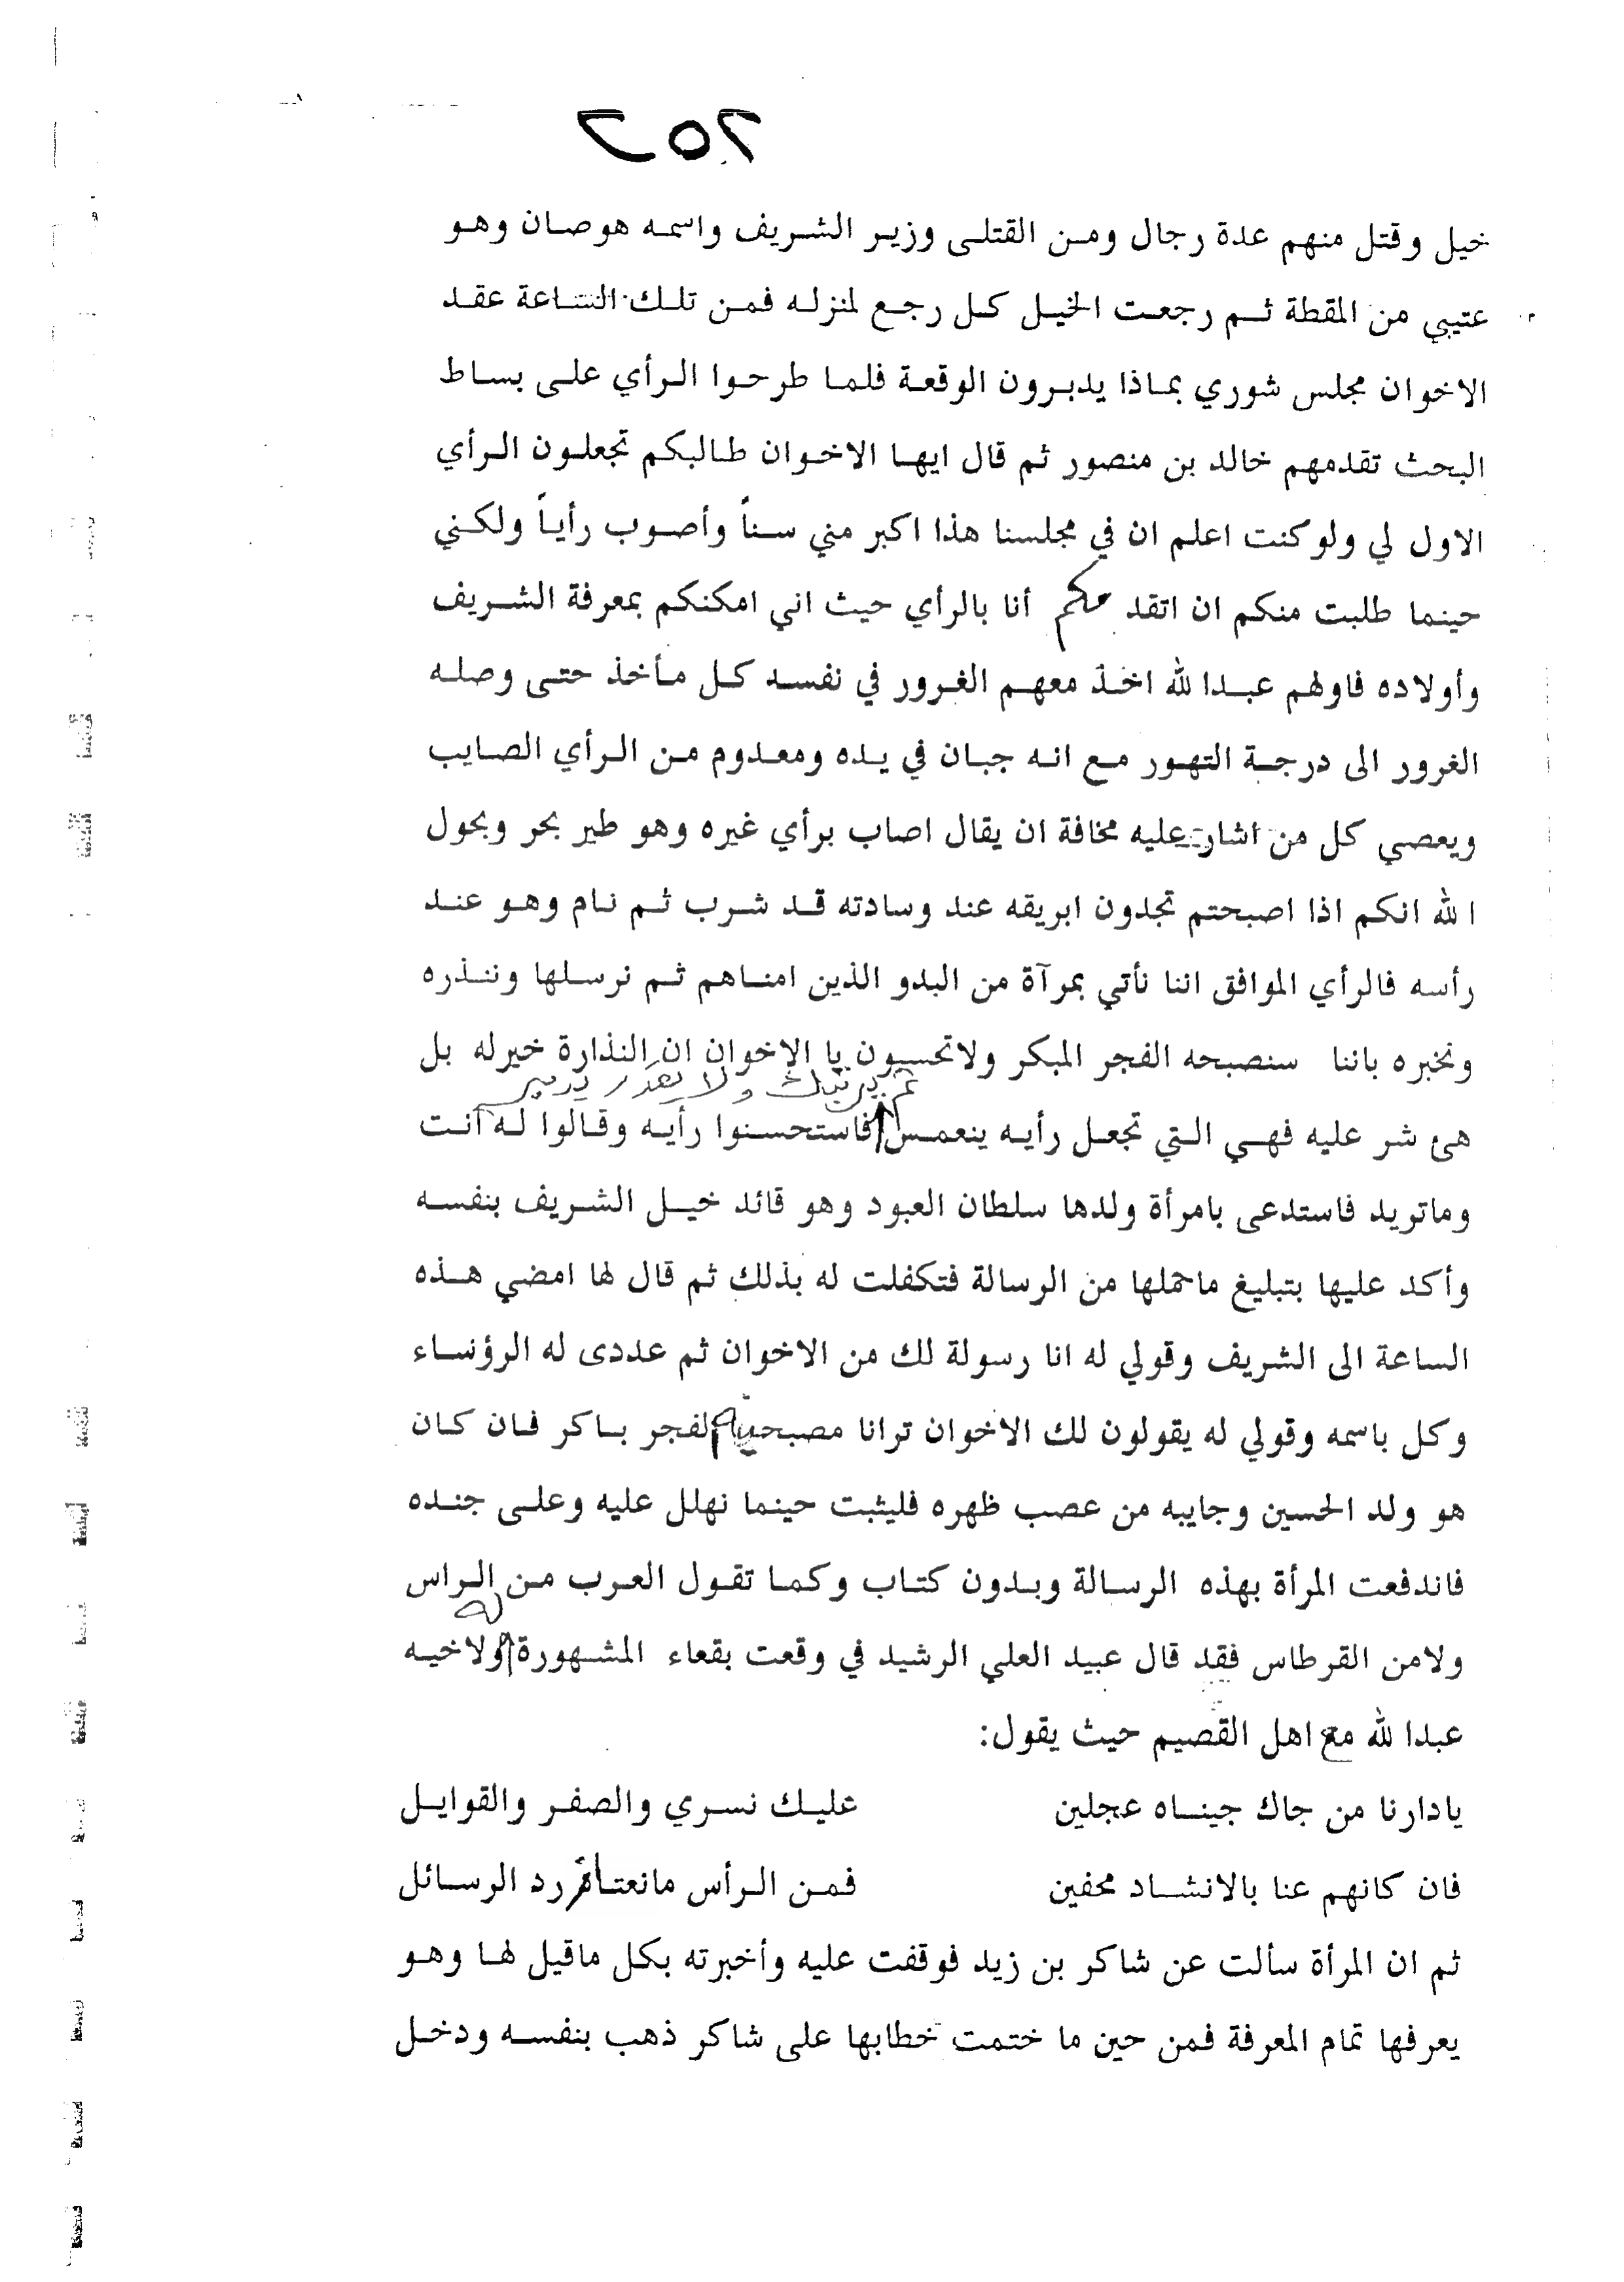 ٢٥٦
خيل وقتل منهم عدة رجال ومن القتلى وزير الشريف واسمه هوصان وهو
عتيبي من المقطة ثم رجعت الخيل كل رجع لمنزله فمن تلك الساعة عقد
الاخوان مجلس شوري بماذا يدبرون الوقعة فلما طرحوا الرأي على بساط
البحث تقدمهم خالد بن منصور ثم قال ايها الاخوان طالبكم تجعلون الرأي
الاول لي ولو كنت اعلم ان في مجلسنا هذا اكبر مني سناً وأصوب رأياً ولكني
حينما طلبت منكم ان اتقدمكم أنا بالرأي حيث اني امكنكم بمعرفة الشريف
وأولاده فاولهم عبدا لله اخذ معهم الغرور في نفسه كل مأخذ حتى وصله
الغرور الى درجة التهور مع انه جبان في يده ومعدوم من الرأي الصايب
ويعصي كل من اشار عليه مخافة ان يقال اصاب برأي غيره وهو طير بحر وبحول
ا لله انكم اذا اصبحتم تجدون ابريقه عند وسادته قد شرب ثم نام وهو عند
رأسه فالرأي الموافق اننا نأتي بمرآة من البدو الذين امناهم ثم نرسلها وننذره
ونخبره باننا سنصبحه الفجر المبكر ولاتحسبون يا الاخوان ان النذارة خيرله بل
ثم يرتبك ولا يقدر يدبر
هئ شر عليه فهي التي تجعل رأيه ينعمس فاستحسنوا رأيه وقالوا له أنت
وماتريد فاستدعى بامرأة ولدها سلطان العبود وهو قائد خيل الشريف بنفسه
وأكد عليها بتبليغ ماحملها من الرسالة فتكفلت له بذلك ثم قال لها امضي هذه
الساعة الى الشريف وقولي له انا رسولة لك من الاخوان ثم عددى له الرؤساء
وكل باسمه وقولي له يقولون لك الاخوان ترانا مصبحينه الفجر باكر فان كان
هو ولد الحسين وجايبه من عصب ظهره فليثبت حينما نهلل عليه وعلى جنده
فاندفعت المرأة بهذه الرسالة وبدون كتاب وكما تقول العرب من الراس
ولامن القرطاس فقد قال عبيد العلي الرشيد في وقعت بقعاء المشهورة له ولاخيه
عبدا لله مع اهل القصيم حيث يقول:
يادارنا من جاك جيناه عجلين عليك نسري والصفر والقوايل
فان كانهم عنا بالانشاد محفين فمن الرأس مانعتاز رد الرسائل
ثم ان المرأة سألت عن شاكر بن زيد فوقفت عليه وأخبرته بكل ماقيل لها وهو
يعرفها تمام المعرفة فمن حين ما ختمت خطابها على شاكر ذهب بنفسه ودخل